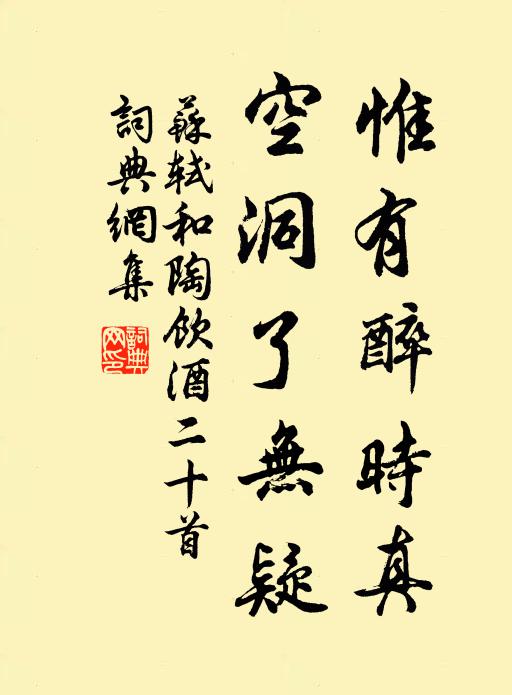 惟有醉時真
空洞了無疑
蘇軾和陶飲酒二十首
詞典網集
詞典
网印